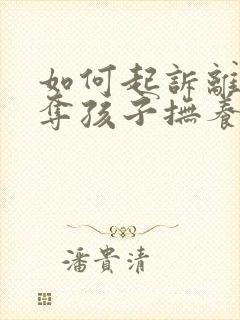 如何起訴離
奪孩子撫養
潘貴清